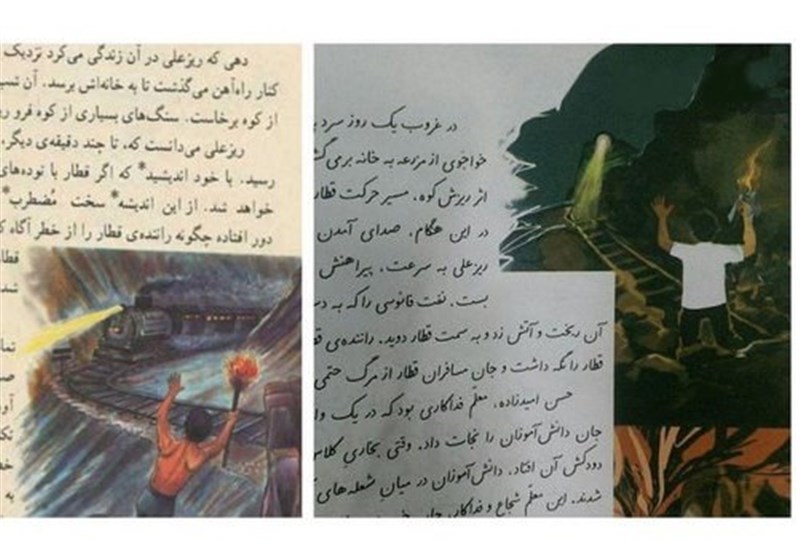 دهی که ریزعلی در آن زندگی می‌کرد نزدیک
کنار راه‌آهن می‌گذشت تا به خانه‌اش برسد. آن
از کوه برخاست. سنگ‌های بسیاری از کوه فرو
ریزعلی می‌دانست که، تا چند دقیقه‌ی دیگر،
رسید. با خود اندیشید* که اگر قطار با توده‌های
خواهد شد. از این اندیشه* سخت مُضطرب*
دور افتاده چگونه راننده‌ی قطار را از خطر آگاه
قطار
شد
در غروب یک روز سرد
خواجوی از مزرعه به خانه برمی‌گش
اثر ریزش کوه، مسیر حرکت قطار
در این هنگام، صدای آمدن
ریزعلی به سرعت، پیراهنش
بست. نفت فانوسی را که به دس
آن ریخت و آتش زد و به سمت قطار دوید. راننده‌ی
قطار را نگه داشت و جان مسافران قطار از مرگ حتمی
حسن امیدزاده، معلّم فداکاری بود که در یک
جان دانش‌آموزان را نجات داد. وقتی بخاری کلاس
دودکش آن افتاد، دانش‌آموزان در میان شعله‌های
شدند. این معلّم شجاع و فداکار،